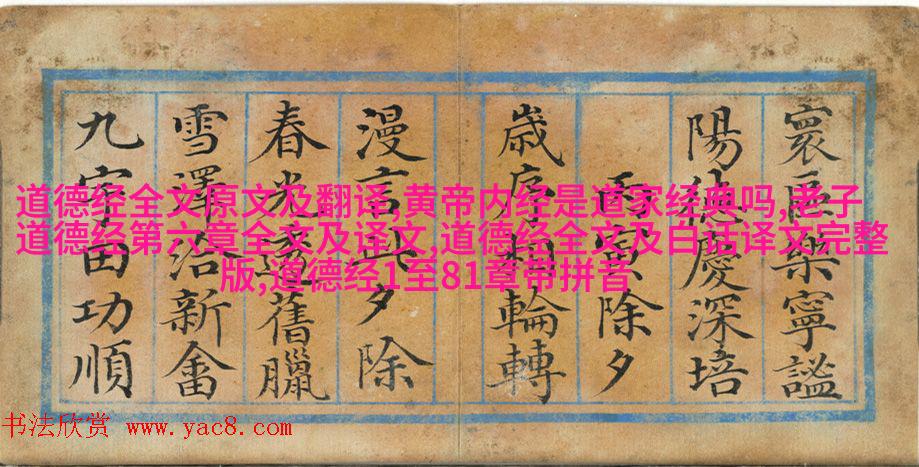 寰區樂寧謐
陽德慶深培
丙寅除夕
歲序相輪轉
漫言此夕除
春光透舊臘
雪澤給新畬
九宇田功順
道德经全文原文及翻译,黄帝内经是道家经典吗,老子
道德经第六章全文及译文,道德经全文及白话译文完整
版,道德经1至81章带拼音
书法欣赏 www.yac8.com